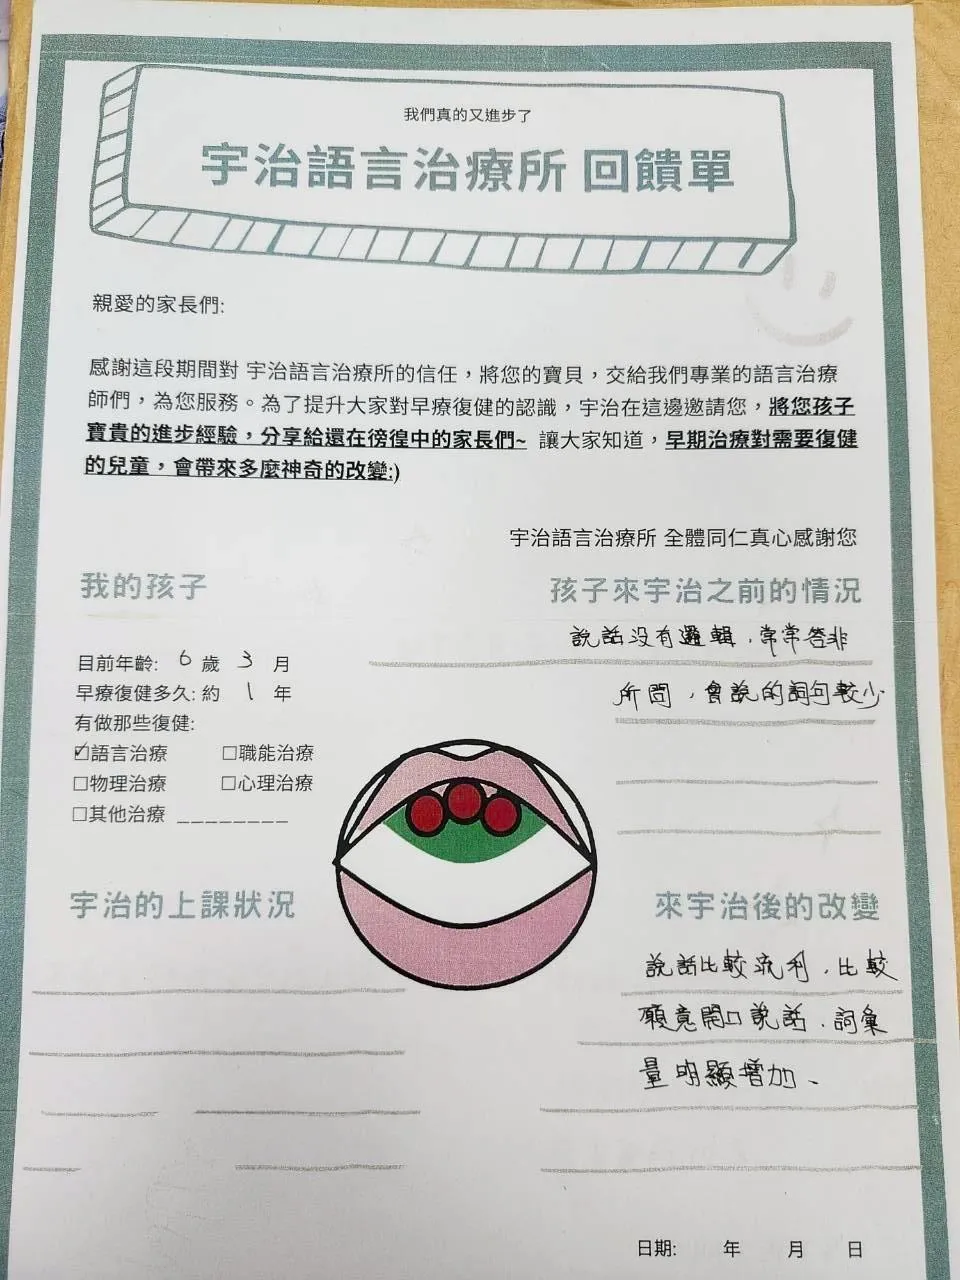 我們真的又進步了
宇治語言治療所 回饋單
親愛的家長們:
感謝這段期間對 宇治語言治療所的信任，將您的寶貝，交給我們專業的語言治療
師們，為您服務。為了提升大家對早療復健的認識，宇治在這邊邀請您，將您孩子
寶貴的進步經驗，分享給還在徬徨中的家長們~ 讓大家知道，早期治療對需要復健
的兒童，會帶來多麼神奇的改變:)
宇治語言治療所 全體同仁真心感謝您
我的孩子
目前年齡: 6 歲 3 月
早療復健多久: 約 1 年
有做那些復健:
☑語言治療 □職能治療
□物理治療 □心理治療
□其他治療 ________
孩子來宇治之前的情況
說話沒有邏輯，常常答非
所問，會說的詞句較少
宇治的上課狀況
來宇治後的改變
說話比較流利，比較
願意開口說話，詞彙
量明顯增加、
日期: 年 月 日